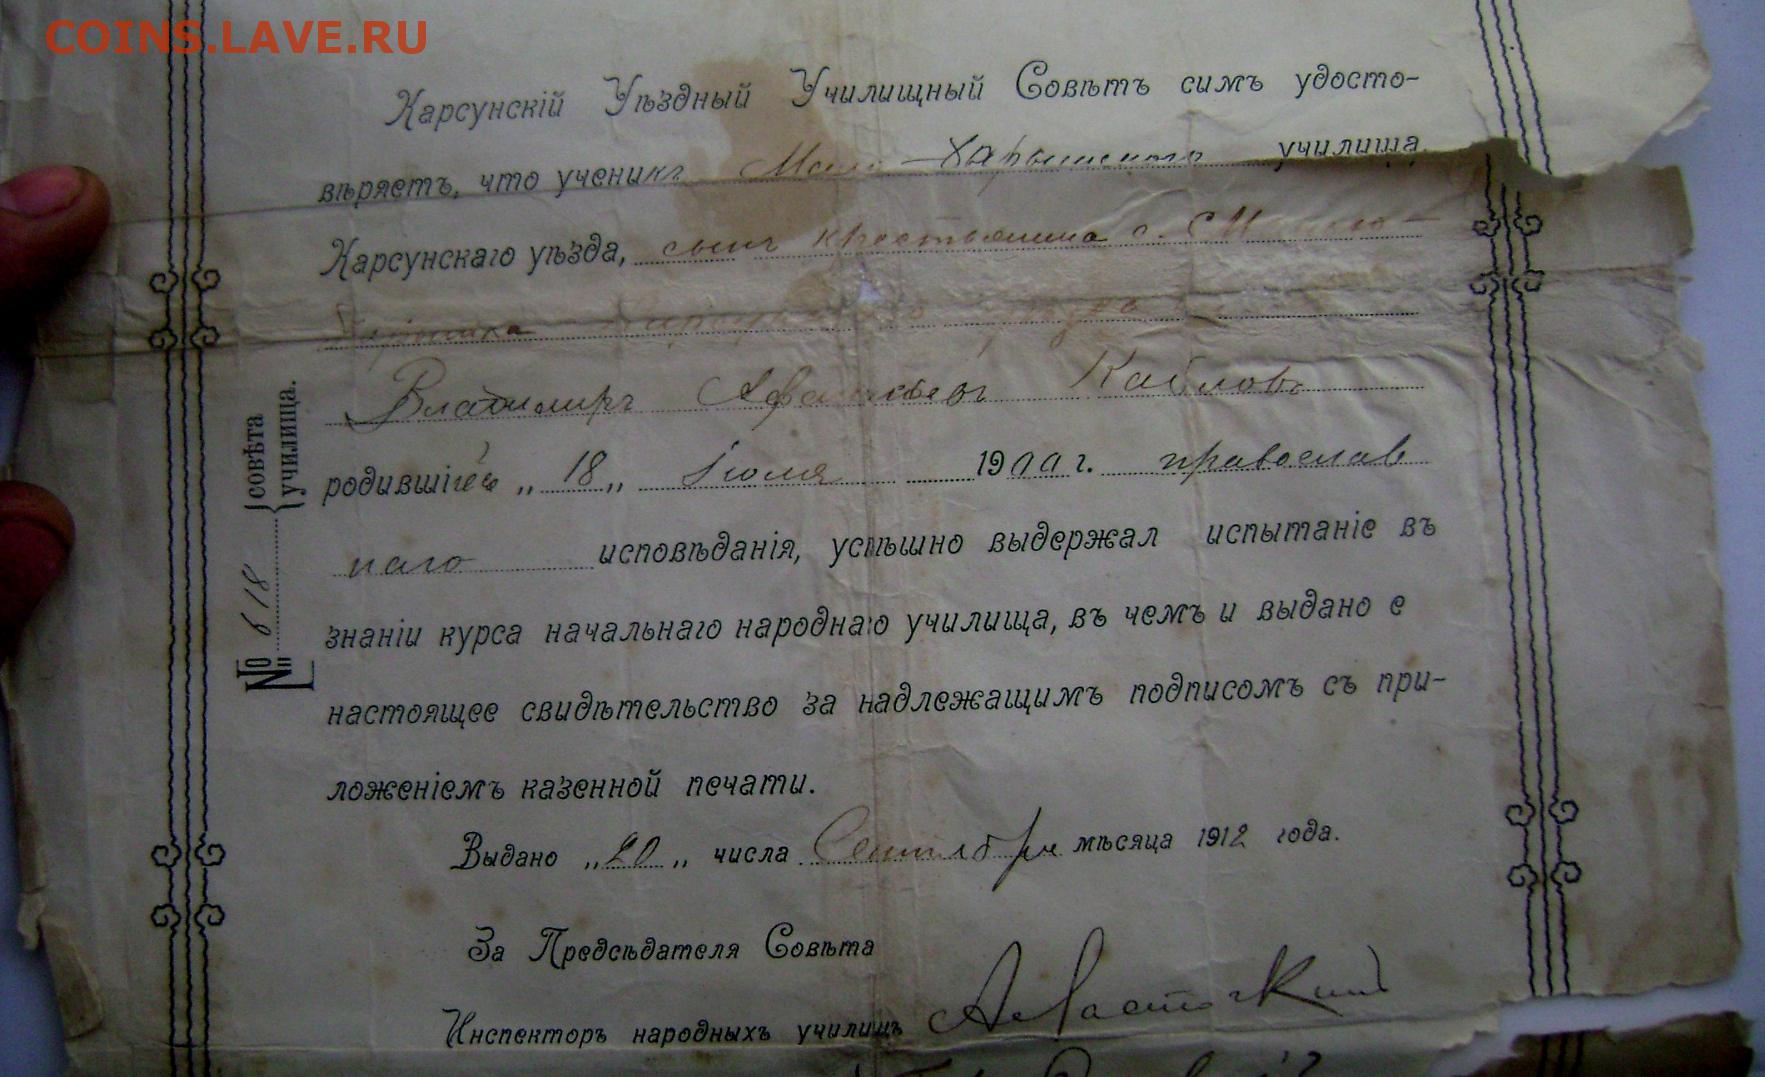 COINS.LAVE.RU
Карсунскій Уѣздный Училищный Совѣтъ симъ удосто-
вѣряетъ, что ученикъ училища
Карсунскаго уѣзда, сынъ крестьянина с.
Владимиръ Афанасьевъ
родившійся „18„ Іюля 1900 г. православ
наго исповѣданія, успѣшно выдержал испытаніе въ
знаніи курса начальнаго народнаго училища, въ чемъ и выдано е
настоящее свидѣтельство за надлежащимъ подписомъ съ при-
ложеніемъ казенной печати.
Выдано „20„ числа Сентября мѣсяца 1912 года.
За Предсѣдателя Совѣта
Инспекторъ народныхъ училищъ
№ 618 {совѣта
училища.